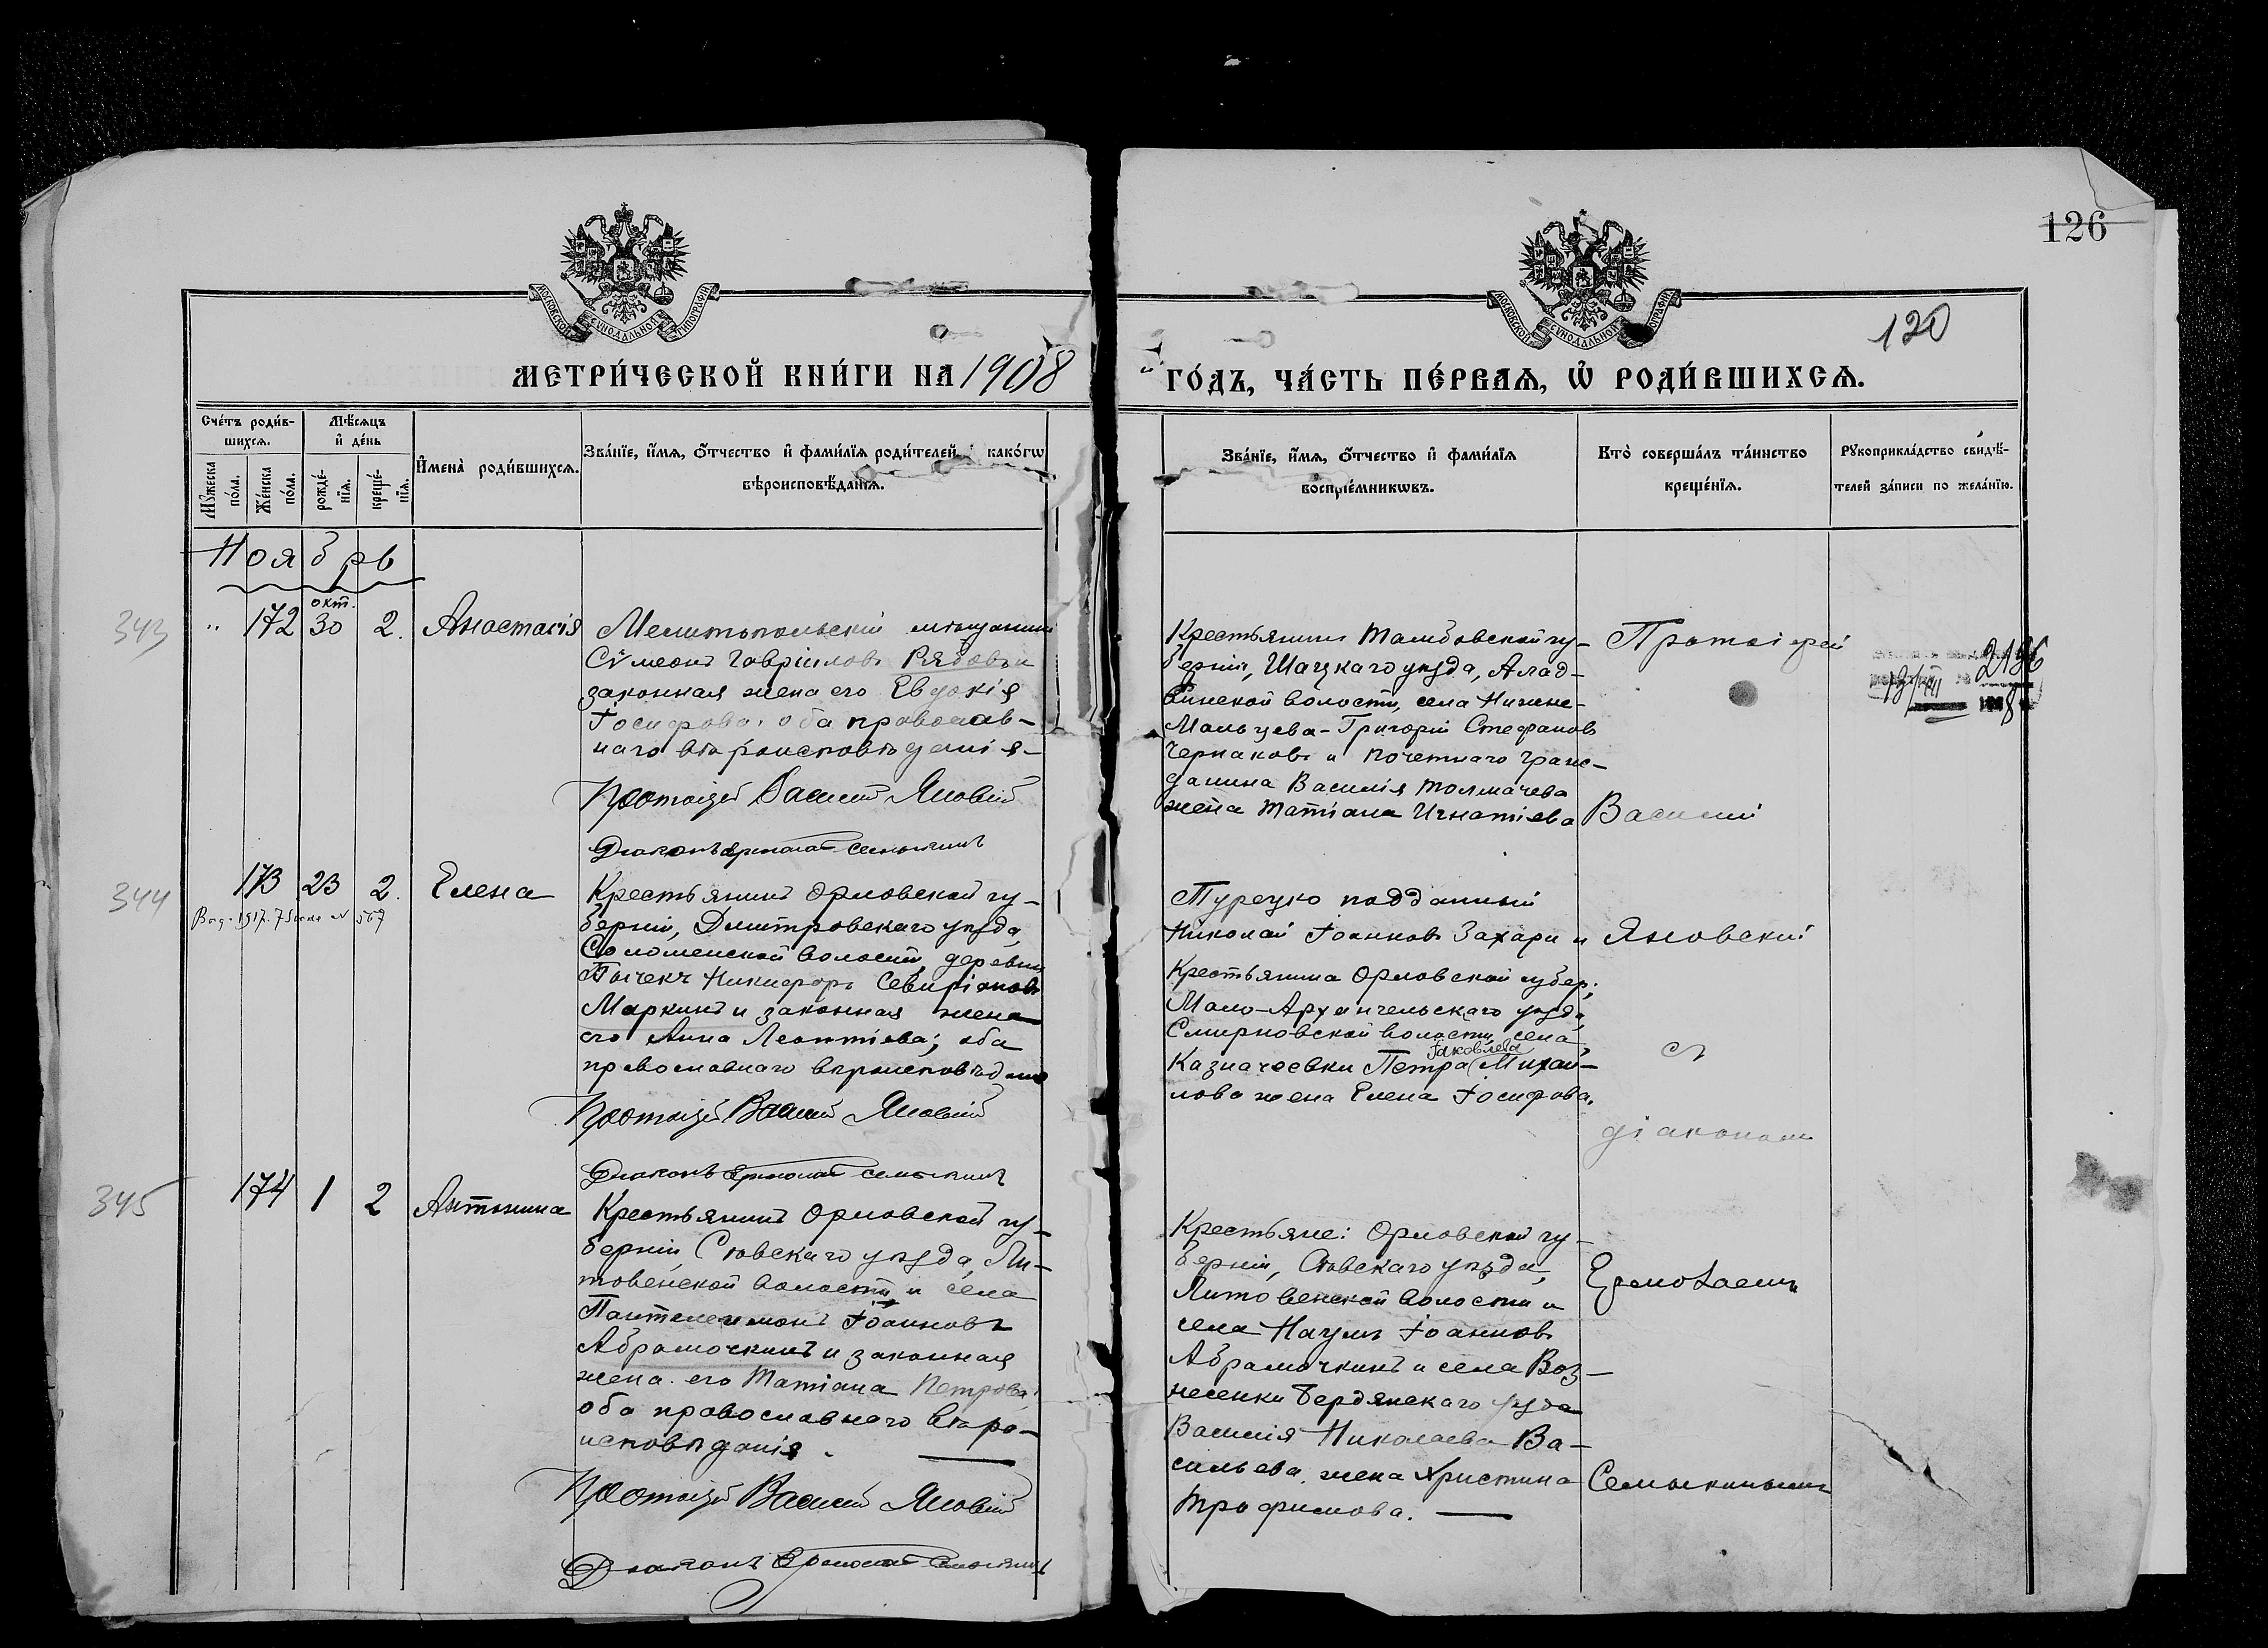 126
МОСКОВСКОЙ СУНОДАЛЬНОЙ ТИПОГРАФІИ
МОСКОВСКОЙ СУНОДАЛЬНОЙ
120
МЕТРИ́ЧЕСКОЙ КНИ́ГИ НА 1908
ГО́ДЪ, ЧА́СТЬ ПЕ́РВАѦ, Ѡ РОДИ́ВШИХСѦ.
Сче́тъ роди́в-
шихсѧ.
Мѣ́сѧцъ
и де́нь
Мꙋ́жеска по́ла.
Же́нска по́ла.
рожде́-
нїѧ.
креще́-
нїѧ.
И҆мена̀ роди́вшихсѧ.
Зва́нїе, и҆́мѧ, ѻ҆́тчество и҆ фами́лїѧ роди́телей, како́гѡ
вѣроисповѣ́данїѧ.
Зва́нїе, и҆́мѧ, ѻ҆́тчество и҆ фами́лїѧ
воспрїе́мникѡвъ.
Кто̀ соверша́лъ та́инство
креще́нїѧ.
Рꙋкоприкла́дство свидѣ́-
телей за́писи по жела́нїю.
Ноябрь
343
" 172 окт. 30 2. Анастасія
Мелитопольскій мѣщанинъ
Сѵмеонъ Гавріиловъ Рябовъ и
законная жена его Евдокія
Іосифова, оба православ-
наго вѣроисповѣданія-
Протоіерей Василій Яновскій
Діаконъ Ермолай Семыкинъ
Крестьянинъ Тамбовской гу-
берніи, Шацкаго уѣзда, Алад-
инской волости, села Нижне-
Мальцева-Григорій Стефановъ
Черпаковъ и почетнаго граж-
данина Василія Толмачева
жена Татіана Игнатіева
Протоіерей
Василій
2196
344
173 23 2. Елена
Выд. 1917. 7 № 567
Крестьянинъ Орловской гу-
берніи, Дмитровскаго уѣзда,
Соломенской волости, деревни
Никифоръ Севиріановъ
Маркинъ и законная жена
его Анна Леонтіева; оба
православнаго вѣроисповѣданія
Протоіерей Василій Яновскій
Діаконъ Ермолай Семыкинъ
Турецко подданный
Николай Іоанновъ Захари и
Крестьянина Орловской губер.
Мало-Архангельскаго уѣзда,
Смирновской волости, села
Казначеевки Петра Іаковлева Михай-
лова жена Елена Іосифова.
Яновскій
съ
діакономъ
345
174 1 2 Антонина
Крестьянинъ Орловской гу-
берніи, Сѣвскаго уѣзда, Ли-
товенской волости и села
Пантелеимонъ Іоанновъ
Абрамочкинъ и законная
жена его Татіана Петрова;
оба православнаго вѣро-
исповѣданія.
Протоіерей Василій Яновскій
Діаконъ Ермолай Семыкинъ
Крестьяне: Орловской гу-
берніи, Сѣвскаго уѣзда,
Литовенской волости и
села Наумъ Іоанновъ
Абрамочкинъ и села Воз-
несенки Бердянскаго уѣзда
Василія Николаева Ва-
сильева жена Христина
Трофимова.
Ермолаемъ
Семыкинымъ